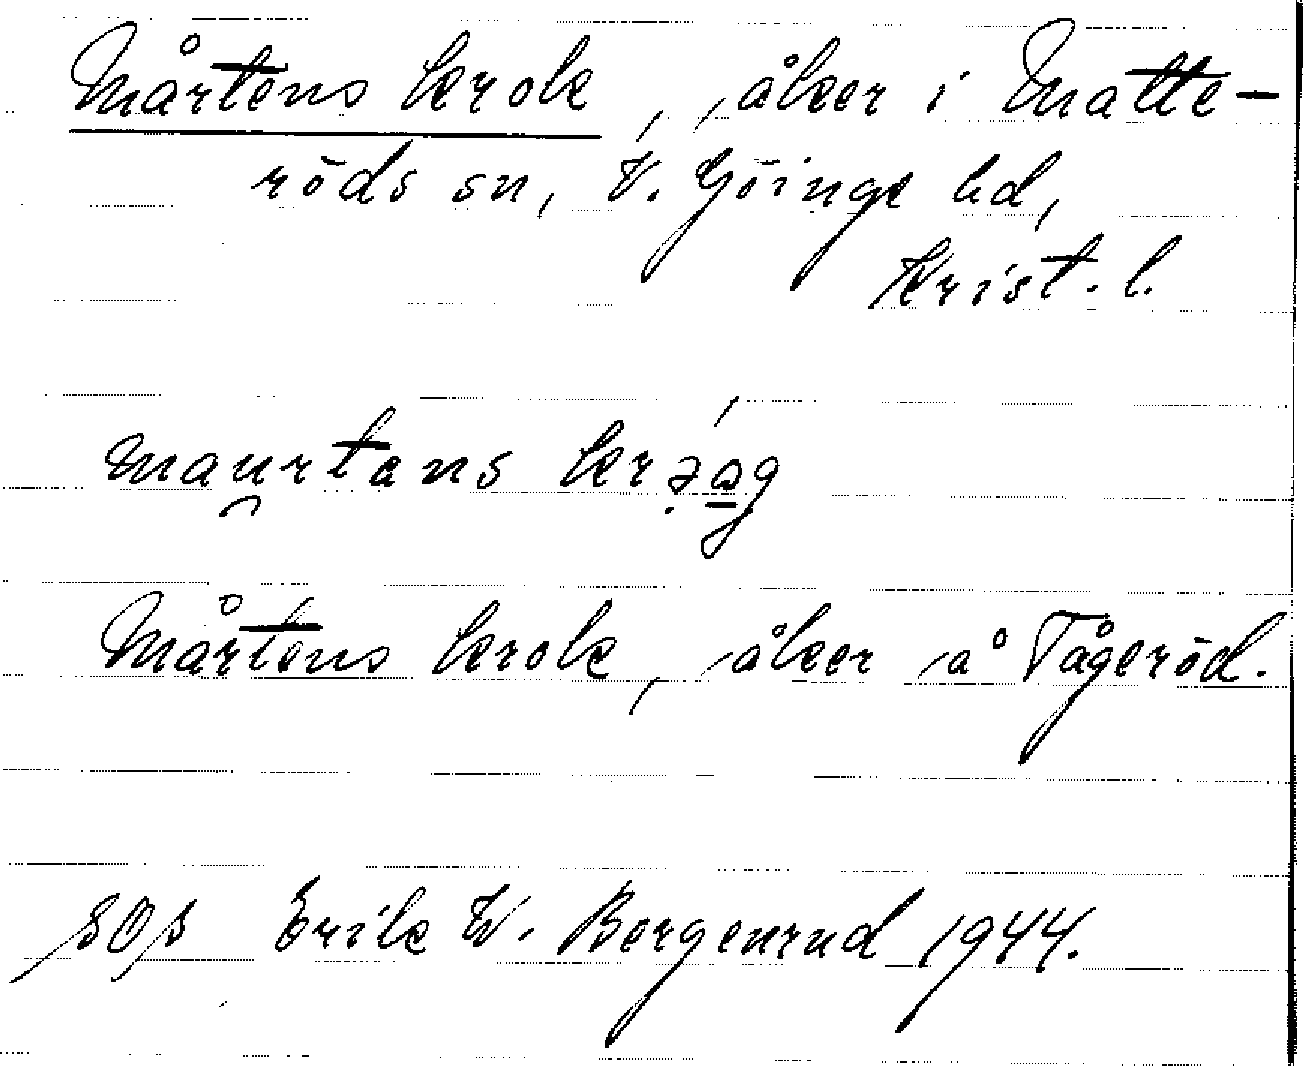 Mårtens krok, åker i Matte-
röds sn, V. Göinge hd,
Krist. l.
Mårtens krok, åker å Tågeröd.
Erik W. Borgenrud 1944.